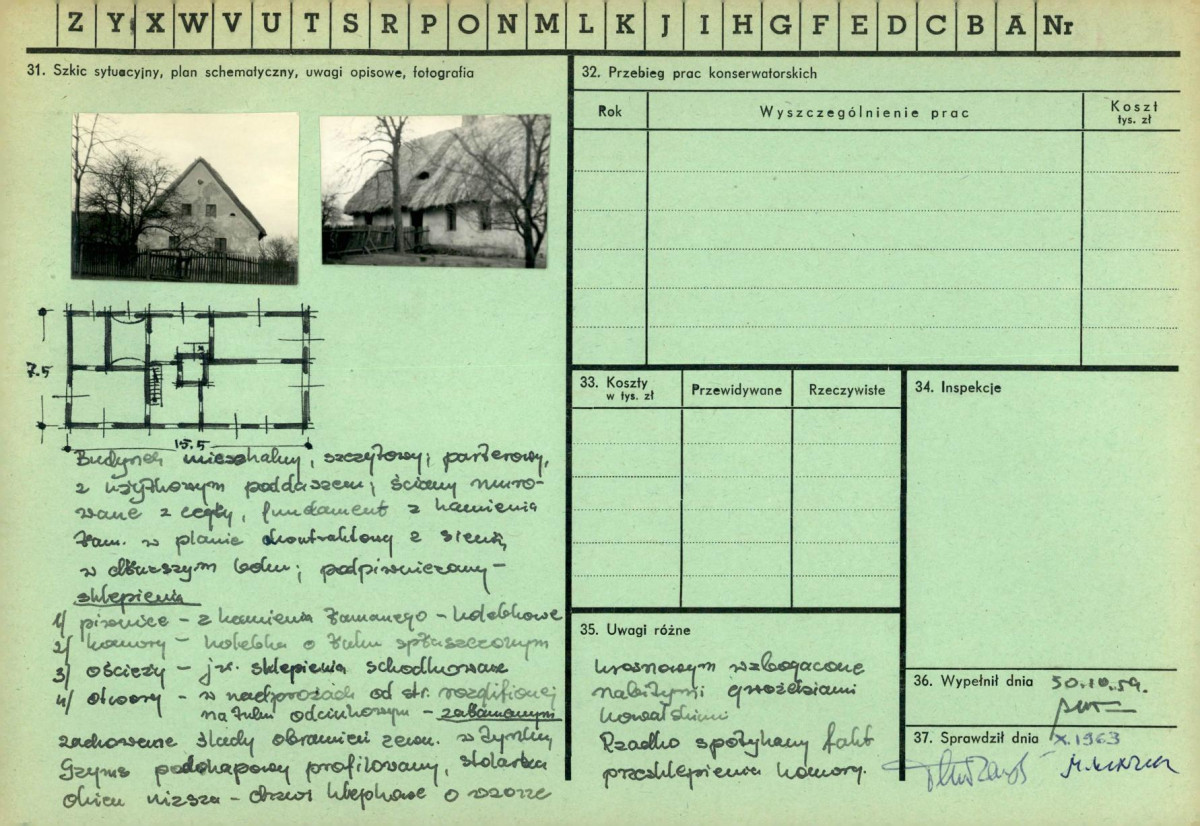 Z Y X W V U T S R P O N M L K J I H G F E D C B A Nr
31. Szkic sytuacyjny, plan schematyczny, uwagi opisowe, fotografia
7.5
15.5
Budynek mieszkalny, szczytowy; parterowy,
z użytkowym poddaszem; ściany muro-
wane z cegły, fundament z kamienia
łam. w planie dwutraktowy z sienią
w dłuższym boku; podpiwniczony –
sklepienia
1/ piwnice – z kamienia łamanego – kolebkowe
2/ komory – kolebka o łuku spłaszczonym
3/ ościeży – jw. sklepienia schodkowane
4/ otwory – w nadprożach od str.
na łuku odcinkowym –
zachowane ślady obramień zewn. w tynku
Gzyms podokapowy profilowany, stolarka
okien niższa – drzwi klepkowe o wzorze
32. Przebieg prac konserwatorskich
Rok
Wyszczególnienie prac
Koszt
tys. zł
33. Koszty
w tys. zł
Przewidywane
Rzeczywiste
34. Inspekcje
35. Uwagi różne
wzbogacone
nabitymi gwoździami
kowalskimi
Rzadko spotykany fakt
przesklepienia komory.
36. Wypełnił dnia 30.10.59.
37. Sprawdził dnia X.1963